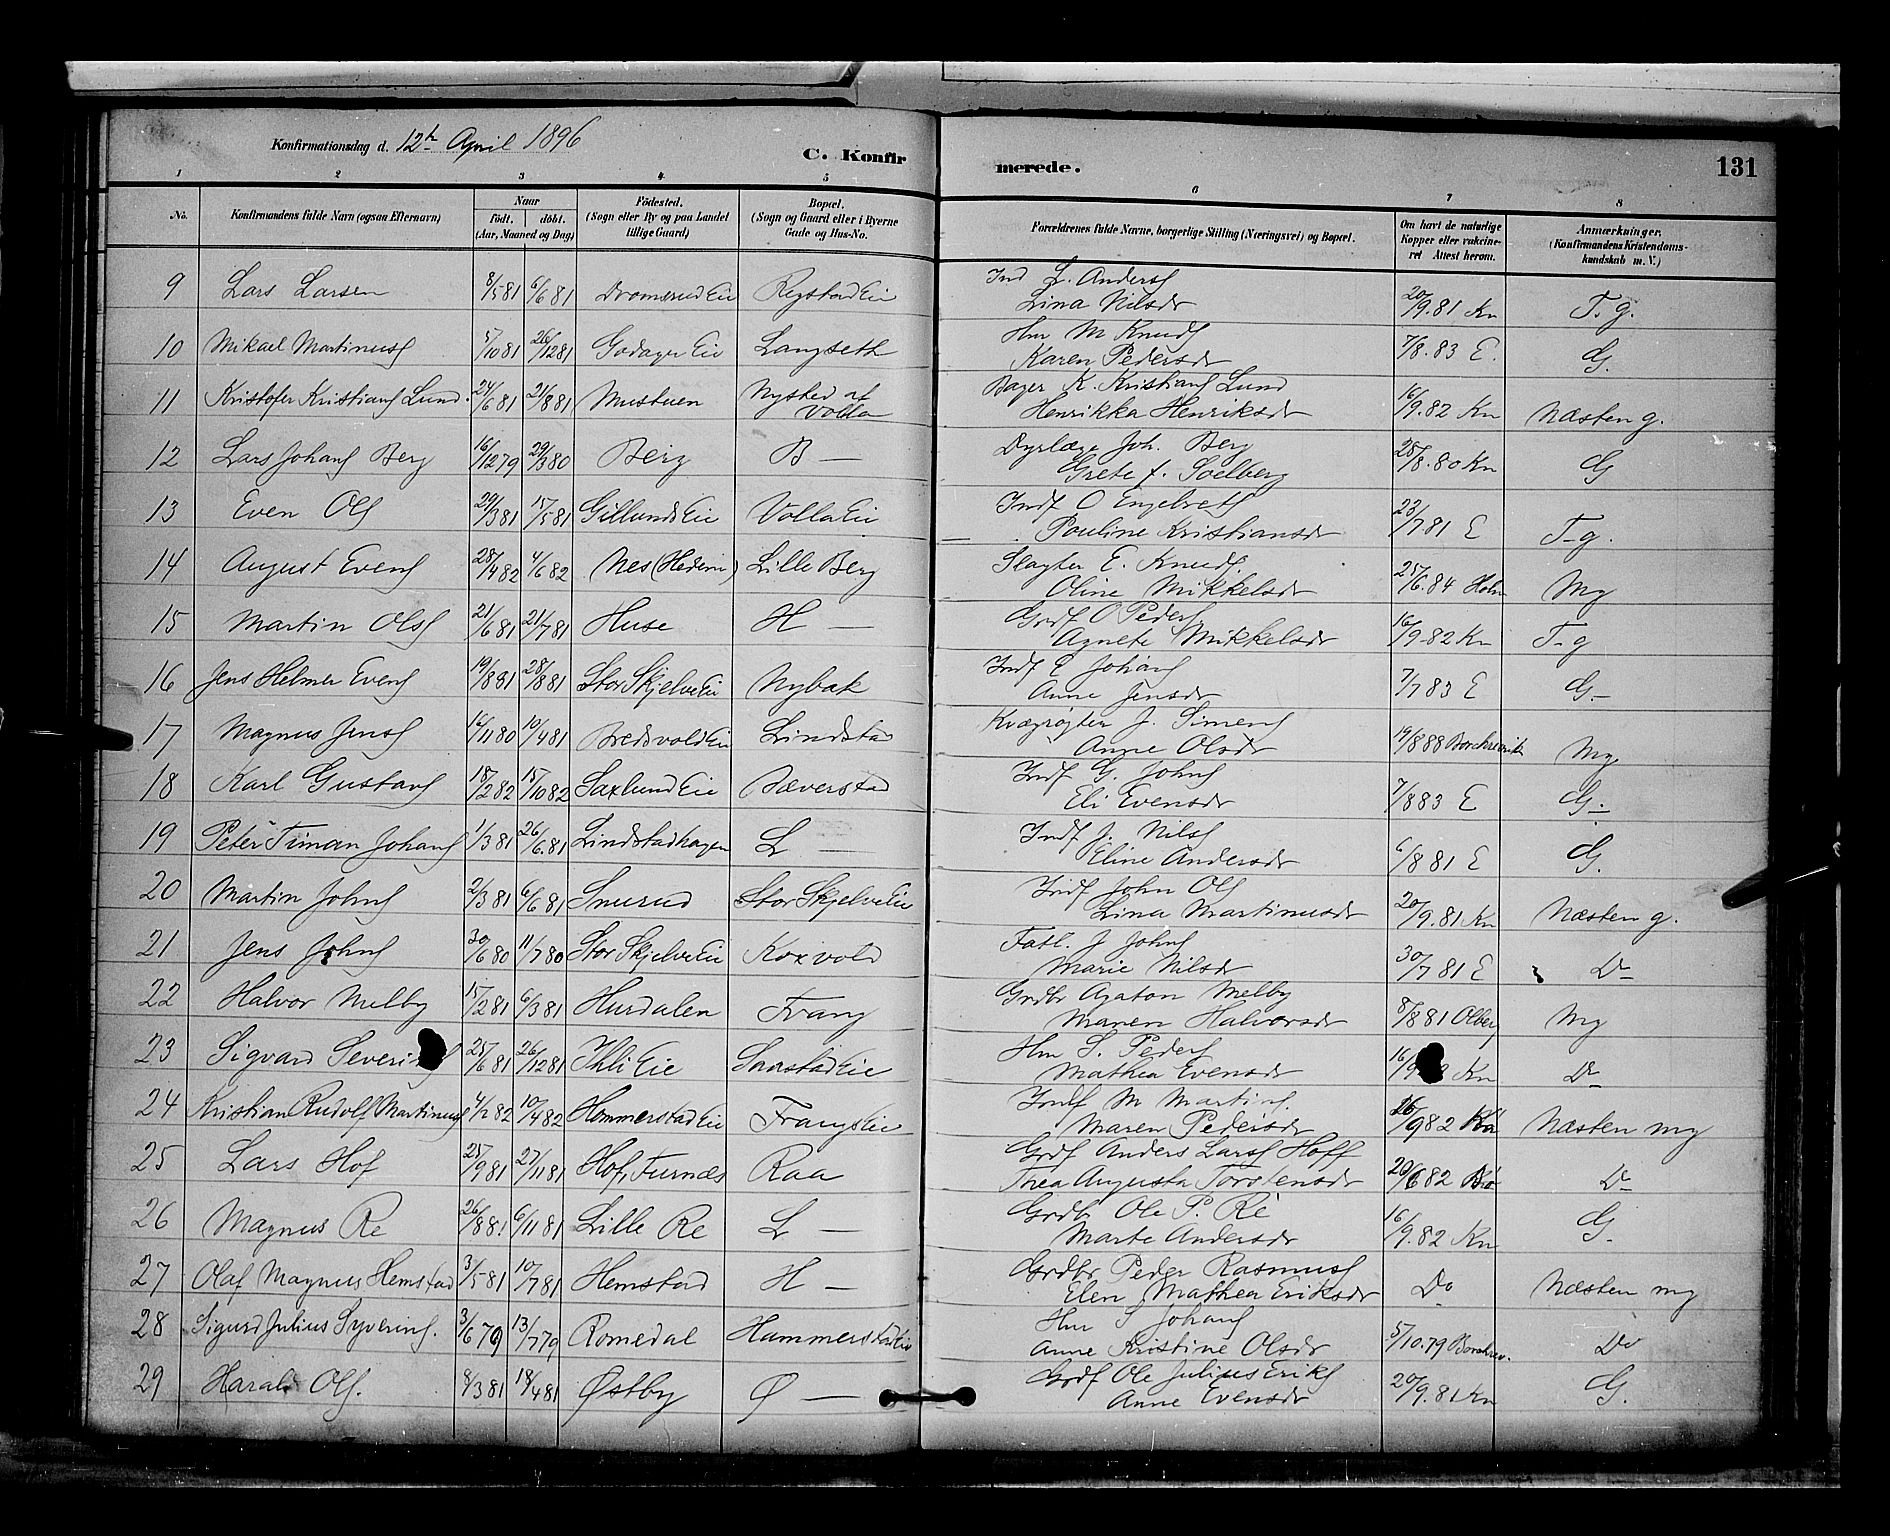 Konfirmationsdag d. 12te April 1896
C. Konfirmerede. 131
1 2 3 4 5 6 7 8
No. Konfirmandens fulde Navn (ogsaa Efternavn) Naar født. døbt. (Aar, Maaned og Dag) Fødested. (Sogn eller By og paa Landet tillige Gaard) Bopæl. (Sogn og Gaard eller i Byerne Gade og Hus-No. Forældrenes fulde Navne, borgerlige Stilling (Næringsvei) og Bopæl. Om havt de naturlige Kopper eller vakcineret Attest herom. Anmærkninger. (Konfirmandens Kristendomskundskab m. V.)
9 Lars Larsen 8/5 81 6/6 81 Dromsrud Eie Rystad Eie Ind L. Anders Lina Nilsdr 20/9. 81 Kn T. g.
10 Mikael Martinus 5/10 81 26/12 81 Godager Eie Langseth Hm M Knuds Karen Pedersdr 7/8. 83 E. G.
11 Kristofer Kristians Lund. 24/6 81 21/8 81 Mustuen Nysted af Volla Bager K. Kristians Lund Henrikka Henriksdr 16/9. 82 Kn Næsten g.
12 Lars Johans Berg 16/12 79 29/3 80 Berg B — Dyrlæge Joh. Berg Grete f. Soelberg 28/8. 80 Kn G
13 Even Ols 29/3 81 15/5 81 Gillunds Eie Volla Eie Indf O Engebrets Pauline Kristiansdr 23/7 81 E T-g.
14 August Evens 28/4 82 4/6 82 Nes (Hedem) Lille Berg Slagter E. Knuds. Oline Mikkelsdr 25/6. 84 Holm Mg
15 Martin Ols 21/6 81 21/7 81 Huse H — Grdf O Peders Agnete Mikkelsdr 16/9. 82 Kn T-g
16 Jens Helmer Evens 19/8 81 28/8 81 Stor Skjelve Eie Nybak Indf E Johans Anne Jensdr 7/7 83 E G-
17 Magnus Jens 16/11 80 10/4 81 Bredsvold Eie Lindstad Kvægrøgter J. Simens Anne Olsdr 19/8 88 Mg
18 Karl Gustavs 18/2 82 15/10 82 Saxlund Eie Bæverstad Indf G. Johns Eli Evensdr 7/8 83 E G.-
19 Peter Timan Johans 1/3 81 26/6. 81 Lindstadhagen L — Indf J. Nils Eline Andersdr 6/8 81 E G.
20 Martin Johns 2/3 81 6/6 81 Snurud Stor Skjelve Eie Indf John Ols Lina Martinusdr 20/9. 81 Kn Næsten g.
21 Jens Johns 30/6 80 11/7 80 Stor Skjelve Eie Koxvold Fatl. J Johns Marie Nilsdr 30/7 81 E Do
22 Halvor Melby 15/2 81 6/3 81 Hurdalen Frang Grdbr Agaton Melby Maren Halvorsdr 8/8 81 Olberg Mg
23 Sigvard 25/6 81 26/12 81 Ihli Eie Saastad Eie Hm S. Peders Mathea Evensdr Kn Do
24 Kristian Rudolf Martinus 4/2 82 10/4 82 Hommerstad Eie Frangs Eie Indf M Martins. Maren Pedersdr 16/9 82 Næsten mg
25 Lars Hof 25/9 81 27/11 81 Hof, Furnæs Raa Grdf Anders Lars Hoff Thea Augusta Torstensdr 20/6 82 Do
26 Magnus Re 26/8 81 6/11 81 Lille Re L — Grdbr Ole P. Re Marte Andersdr 16/9. 82 Kn G.
27 Olaf Magnus Hemstad 3/5 81 10/7 81 Hemstad H — Grdbr Peder Rasmus Elen Mathea Eriksdr Do Næsten mg
28 Sigurd Julius Syverins. 3/6 79 13/7 79 Romedal Hammerstad Eie Hm S Johans Anne Kristine Olsdr 5/10. 79 Do
29 Harald Ols. 8/3 81 18/4 81 Østby Ø — Grdf Ole Julius Eriks Anne Evensdr 20/9. 81 Kn G.